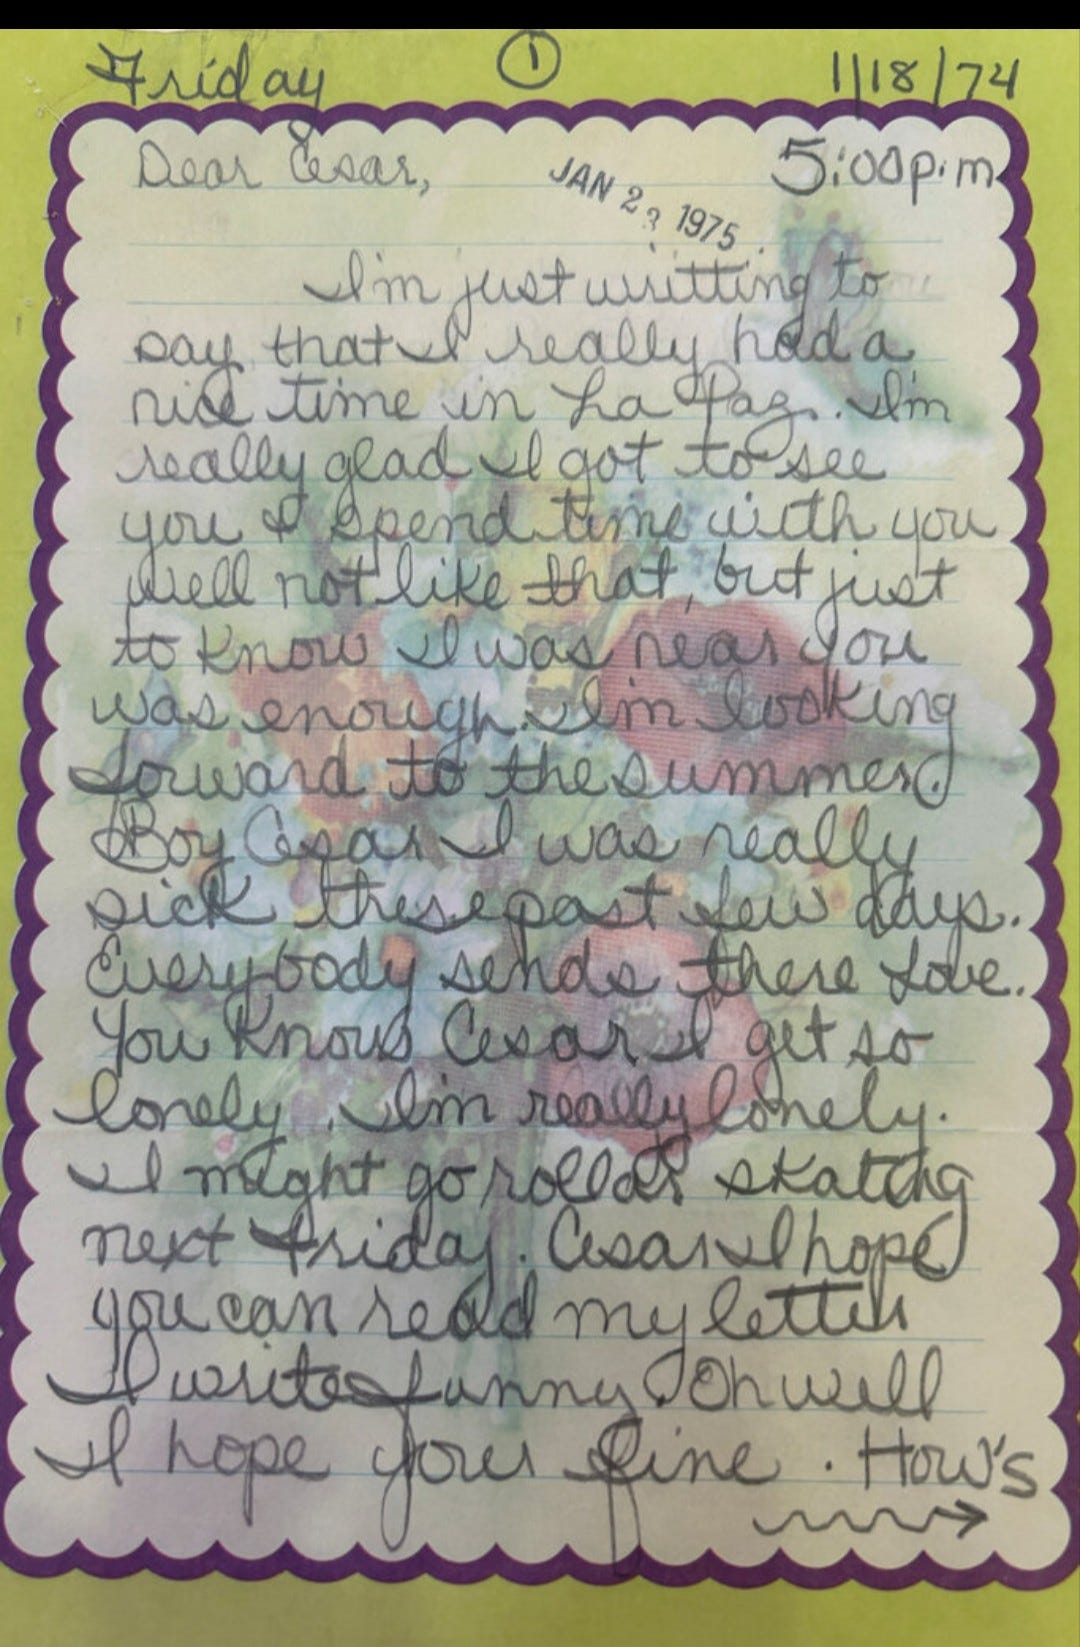 Friday ① 1/18/74
Dear Cesar, 5:00 p.m
JAN 2? 1975
I'm just writting to
say that I really had a
nice time in La Paz. I'm
really glad I got to see
you & spend time with you
well not like that, but just
to know I was near you
was enough. I'm looking
forward to the summer.
Boy Cesar I was really
sick these past few days.
Everybody sends there Love.
You Know Cesar I get so
lonely. I'm really lonely.
I might go roller skating
next Friday. Cesar I hope
you can read my letter
I write funny. Oh well
I hope your fine. How's